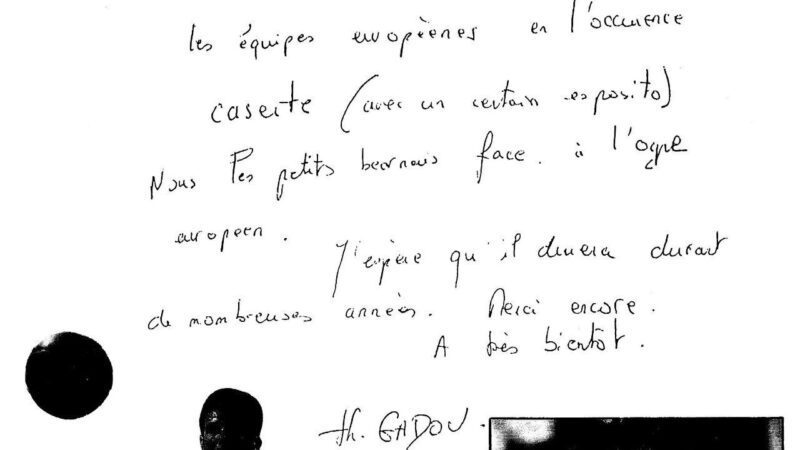 les équipes européenes en l'occurence
caserte (avec un certain esposito)
Nous les petits bearnais face à l'ogre
européen.
J'espère qu'il durera durant
de nombreuses années. Merci encore.
A très bientôt.
th. GADOU.